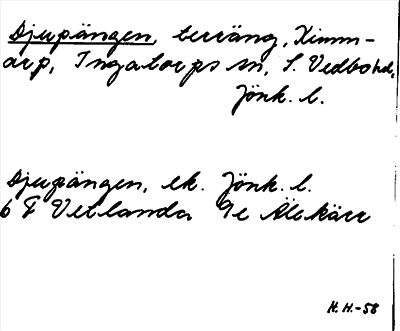 Djupängen, terräng, Kimm-
arp, Ingatorps sn, S. Vedbo hd,
Jönk. l.
Djupängen, ek. Jönk. l.
6 F Vetlanda 9e Älekärr
H. H.-58